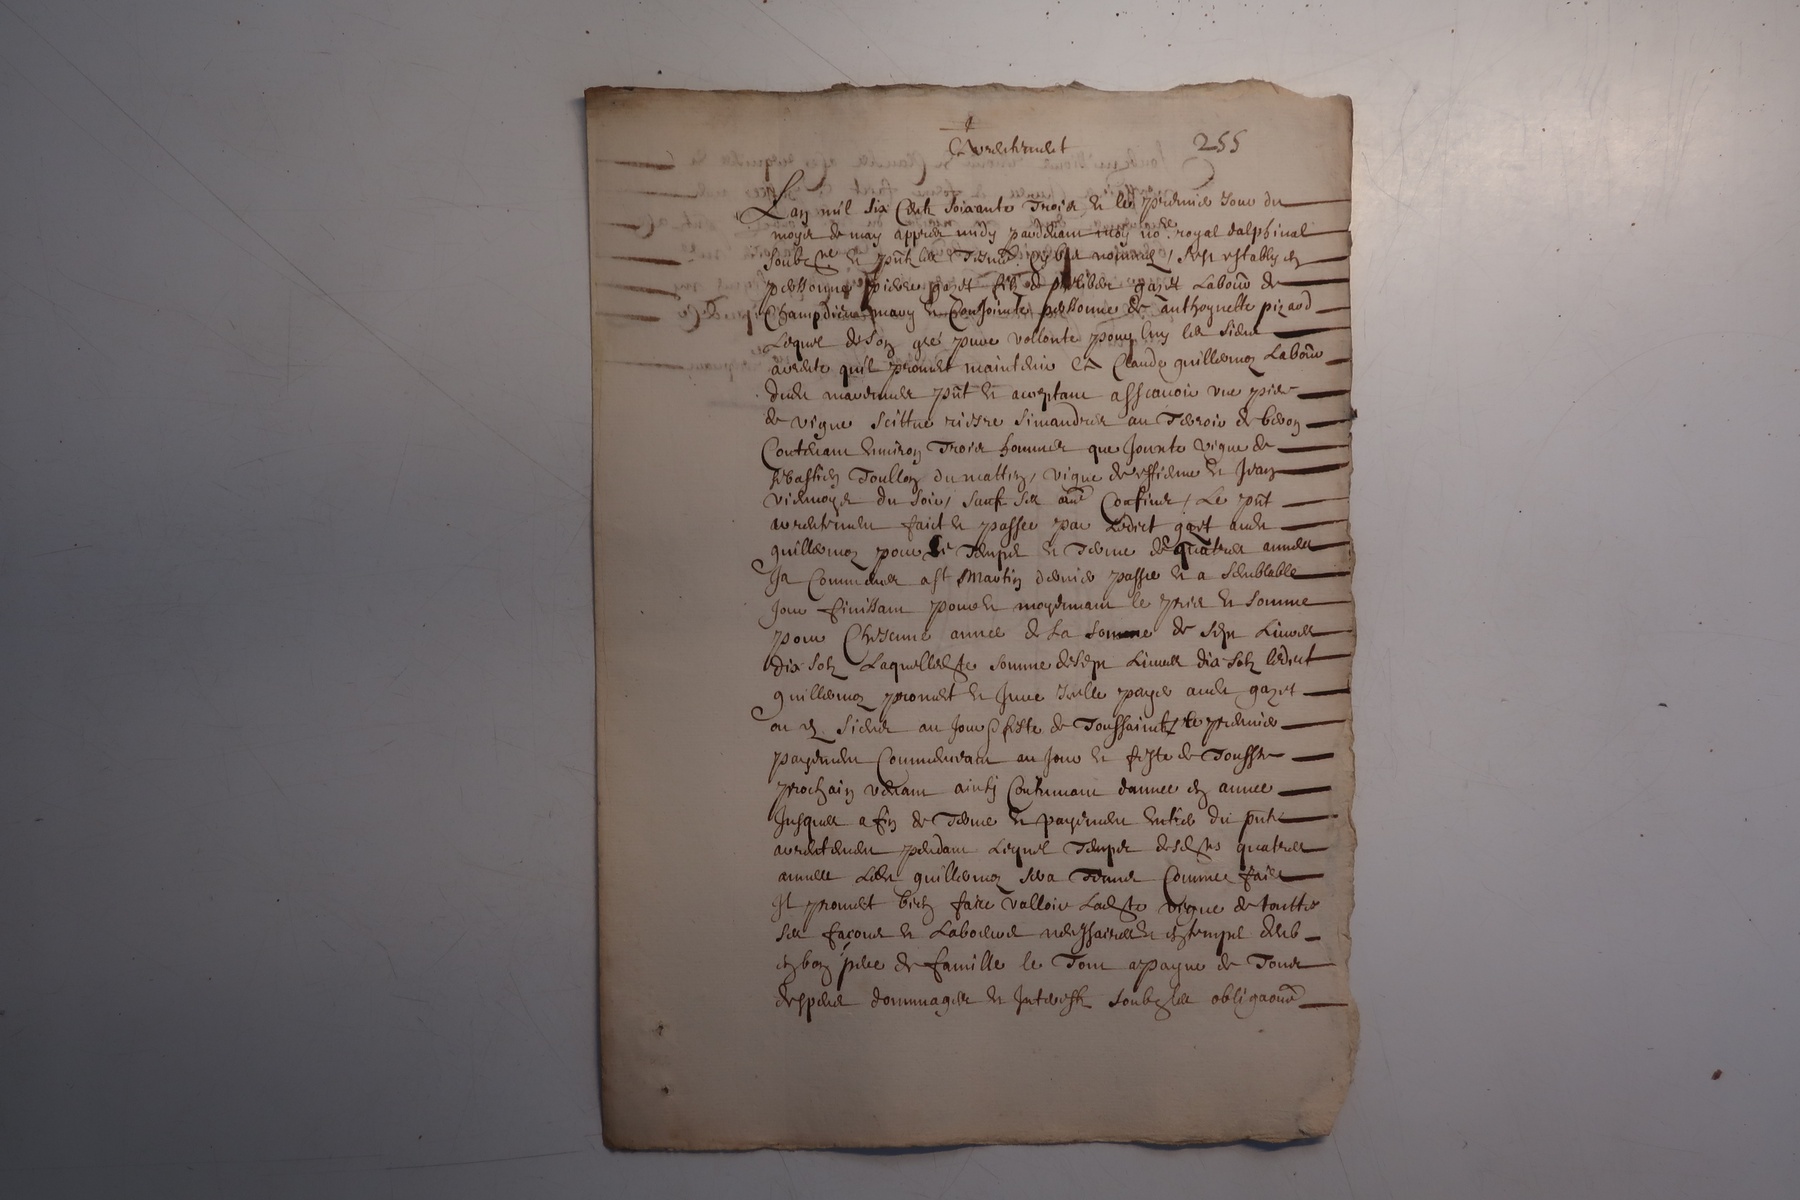 Arrentement 255
Lan mil six Cent soixante Trois et le premier Jour du
moys de may appres midy pardevant moy no.re royal dalphinal
soubz.ne et pnt les Tesm. nommes, sest estably en
personne pierre gazet filz de gazet Labour de
Champdieu mary et Conjointe personne de anthoynette pizard
Lequel de son gre pure vollonte pour luy les siens
arrente quil promet maintenir Ea Claude guillermoz Labour
dude pnt et aceptant asscavoir une piece
de vigne scittue riesre simandres au Terroir de
Contenant environ Trois hommes que Jouxte vigne de
sebastien Toullon du mattin, vigne de estienne et Jean
du soir, sauf ses au Confins, Le pnt
arrentement faict et passee par Ledict gazet aude
guillermoz pour le Temps et Terme de quatres annees
Ja Commence a st Martin dernier passe et a semblable
Jour finissant pour et moyennant le pris et somme
pour Chescune annee de La somme de sept Livres
dix solz Laquelle somme de sept Livres dix solz ledict
guillermoz promet et Jure Icelle payer aude gazet
ou es siens au Jour feste de Toussaintz Le premier
payement Commencant au Jour et feste de Touss
prochain venant ainsy Continuant dannee en annee
Jusques a fin de Terme et payement entier du pnt
arrentement pendant Lequel Temps quatres
annees Led guillermoz sera Tenu Comme faire
Il promet bien faire valloir vigne de touttes
ses facons et Labeures necessaires et en temps
en bon pere de famille le Tout a payne de Tous
despens dommages et Interestz soubz les obligaons